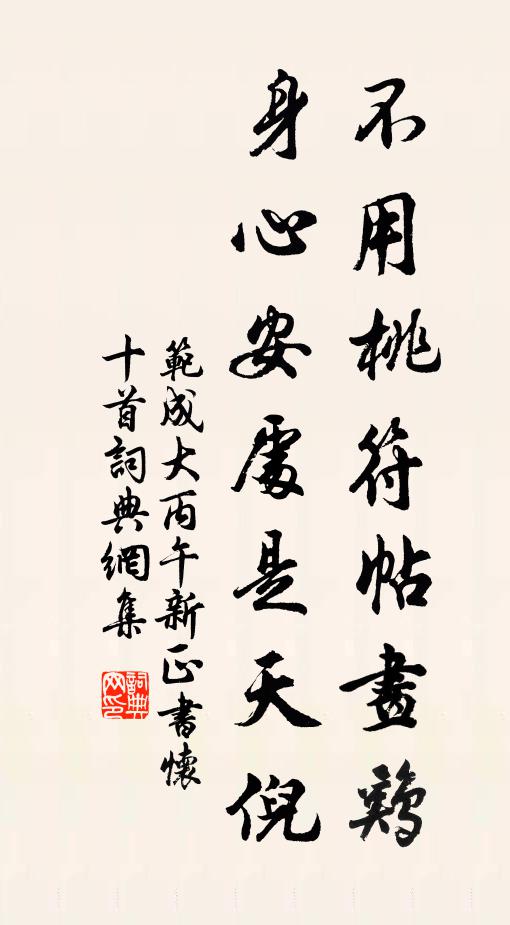 不用桃符帖畫鷄
身心安處是天倪
範成大丙午新正書懷
十首詞典網集
詞典网印